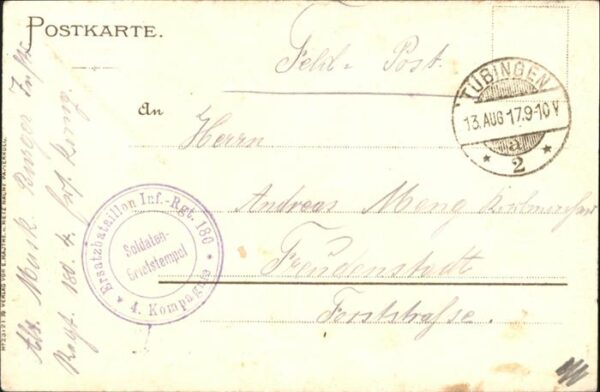 POSTKARTE.
Feld-Post.
TÜBINGEN
13. AUG 17. 9-10 V
a
* 2 *
An
Herrn
Andreas Meng
Freudenstadt
Forststrasse.
Ersatzbataillon Inf.-Rgt. 180
Soldaten-
Briefstempel
* 4. Kompagnie *
Abs. Musk.
Regt. 180. 4.